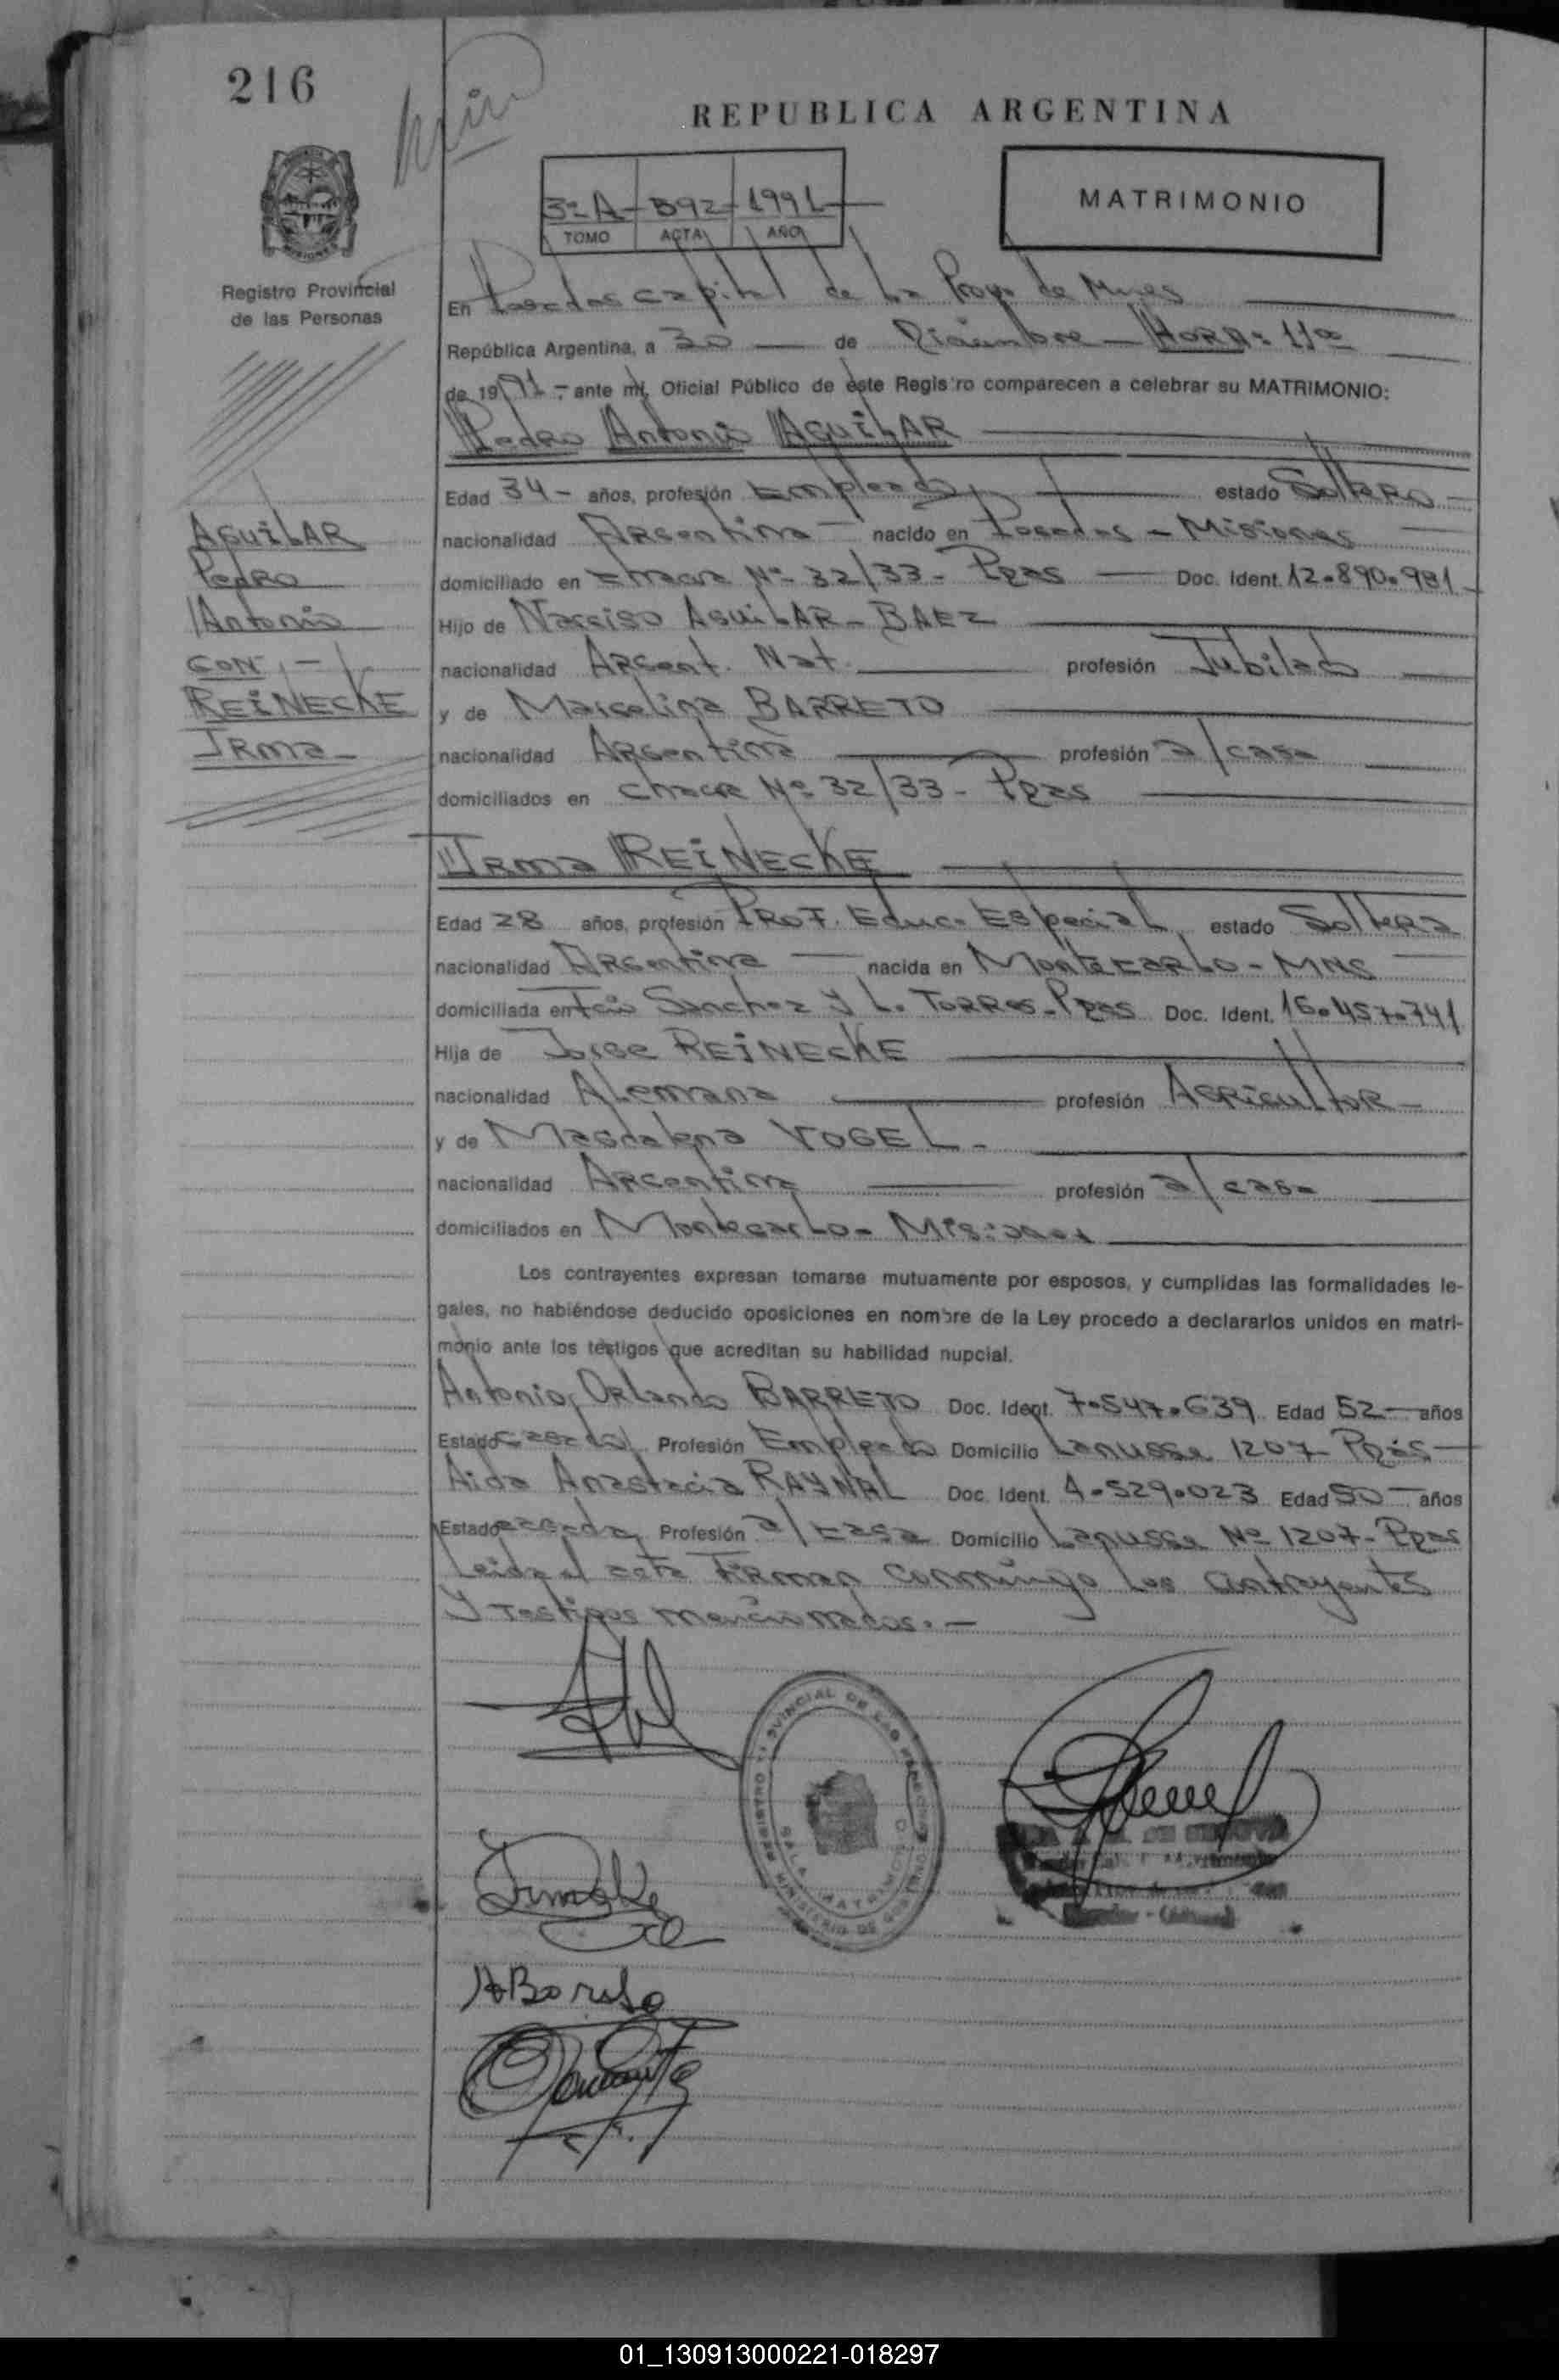 216
REPUBLICA ARGENTINA
3º A - 592 - 1991
TOMO ACTA AÑO
MATRIMONIO
Registro Provincial
de las Personas
En Posadas capital de la Prova de Mnes
República Argentina, a 30 de Diciembre - HORA: 11
de 1991 - ante mí, Oficial Público de este Registro comparecen a celebrar su MATRIMONIO:
Pedro Antonio AGUILAR
Edad 34 - años, profesión Empleado estado Soltero
nacionalidad Argentina nacido en Posadas - Misiones
domiciliado en Chacra Nº 32/33 - Pdas Doc. Ident. 12.890.981
Hijo de Narciso AGUILAR - BAEZ
nacionalidad Argent. Nat. profesión Jubilado
y de Marcelina BARRETO
nacionalidad Argentina profesión a/casa
domiciliados en Chacra Nº 32/33 - Pdas
AGUILAR
Pedro
Antonio
CON -
REINECKE
Irma
Irma REINECKE
Edad 28 años, profesión Prof. Educ. Especial estado Soltera
nacionalidad Argentina nacida en Montecarlo - MNES
domiciliada en Sanchez y L. Torres - Pdas Doc. Ident. 16.457.741
Hija de Jorge REINECKE
nacionalidad Alemana profesión Agricultor
y de Magdalena VOGEL
nacionalidad Argentina profesión a/casa
domiciliados en Montecarlo - Misiones
Los contrayentes expresan tomarse mutuamente por esposos, y cumplidas las formalidades le-
gales, no habiéndose deducido oposiciones en nombre de la Ley procedo a declararlos unidos en matri-
monio ante los testigos que acreditan su habilidad nupcial.
Antonio Orlando BARRETO Doc. Ident. 7.547.639 Edad 52 años
Estado casado Profesión Empleado Domicilio Lanusse 1207 Pdas
Aida Anastacia RAYNAL Doc. Ident. 4.529.023 Edad 50 años
Estado casada Profesión a/casa Domicilio Lanusse Nº 1207 - Pdas
Leida el acta Firman conmigo los contrayentes
y testigos mencionados. -
REGISTRO PROVINCIAL DE LAS PERSONAS
MINISTERIO DE GOBIERNO
SALA MATRIMONIO
01_130913000221-018297